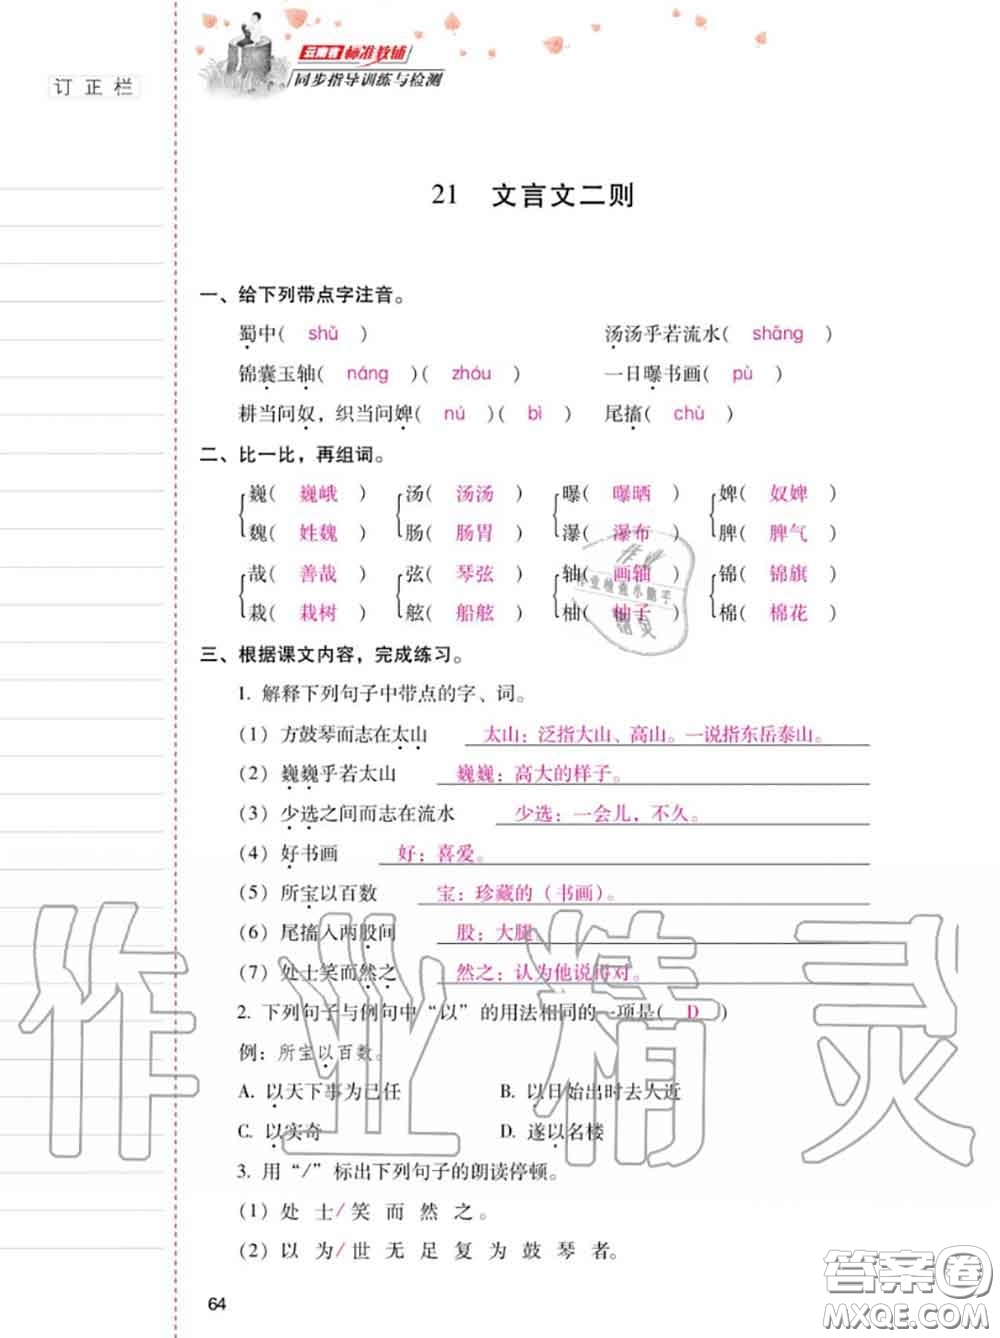 云南省标准教辅
同步指导训练与检测
订正栏
21 文言文二则
一、给下列带点字注音。
蜀中( shǔ ) 汤汤乎若流水( shāng )
锦囊玉轴( náng )( zhóu ) 一日曝书画( pù )
耕当问奴，织当问婢( nú )( bì ) 尾搐( chù )
二、比一比，再组词。
巍( 巍峨 ) 汤( 汤汤 ) 曝( 曝晒 ) 婢( 奴婢 )
魏( 姓魏 ) 肠( 肠胃 ) 瀑( 瀑布 ) 脾( 脾气 )
哉( 善哉 ) 弦( 琴弦 ) 轴( 画轴 ) 锦( 锦旗 )
栽( 栽树 ) 舷( 船舷 ) 柚( 柚子 ) 棉( 棉花 )
三、根据课文内容，完成练习。
1. 解释下列句子中带点的字、词。
(1) 方鼓琴而志在太山 太山：泛指大山、高山。一说指东岳泰山。
(2) 巍巍乎若太山 巍巍：高大的样子。
(3) 少选之间而志在流水 少选：一会儿，不久。
(4) 好书画 好：喜爱。
(5) 所宝以百数 宝：珍藏的（书画）。
(6) 尾搐入两股间 股：大腿
(7) 处士笑而然之 然之：认为他说得对。
2. 下列句子与例句中“以”的用法相同的一项是( D )
例：所宝以百数。
A. 以天下事为己任 B. 以日始出时去人近
C. 以实奇 D. 遂以名楼
3. 用“/”标出下列句子的朗读停顿。
(1) 处 士/ 笑 而 然 之 。
(2) 以 为/ 世 无 足 复 为 鼓 琴 者。
64
作业精灵
答案圈
MXQE.COM